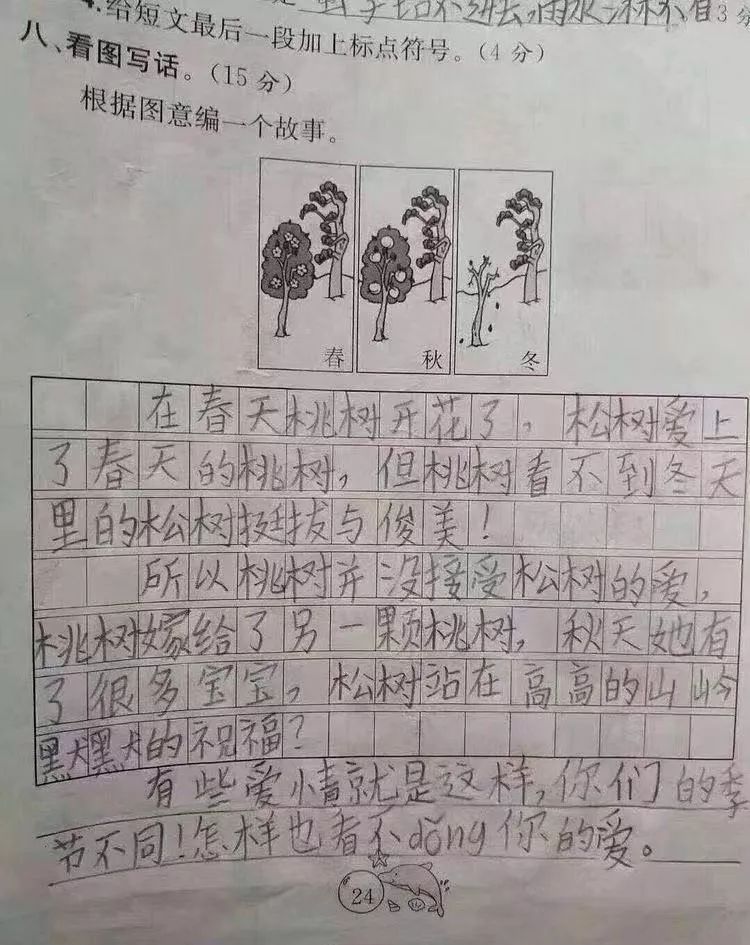 4.给短文最后一段加上标点符号。(4分)
3分
八、看图写话。(15分)
根据图意编一个故事。
春 秋 冬
在春天桃树开花了，松树爱上
了春天的桃树，但桃树看不到冬天
里的松树挺拔与俊美！
所以桃树并没接受松树的爱，
桃树嫁给了另一颗桃树，秋天她有
了很多宝宝，松树站在高高的山岭
黑犬嘿犬的祝福？
有些爱情就是这样，你们的季
节不同！怎样也看不dǒng你的爱。
24